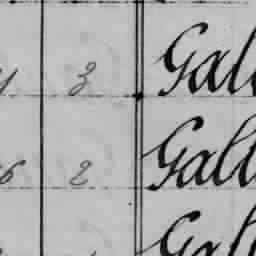 3 Gal
6 2 Gall
Gal